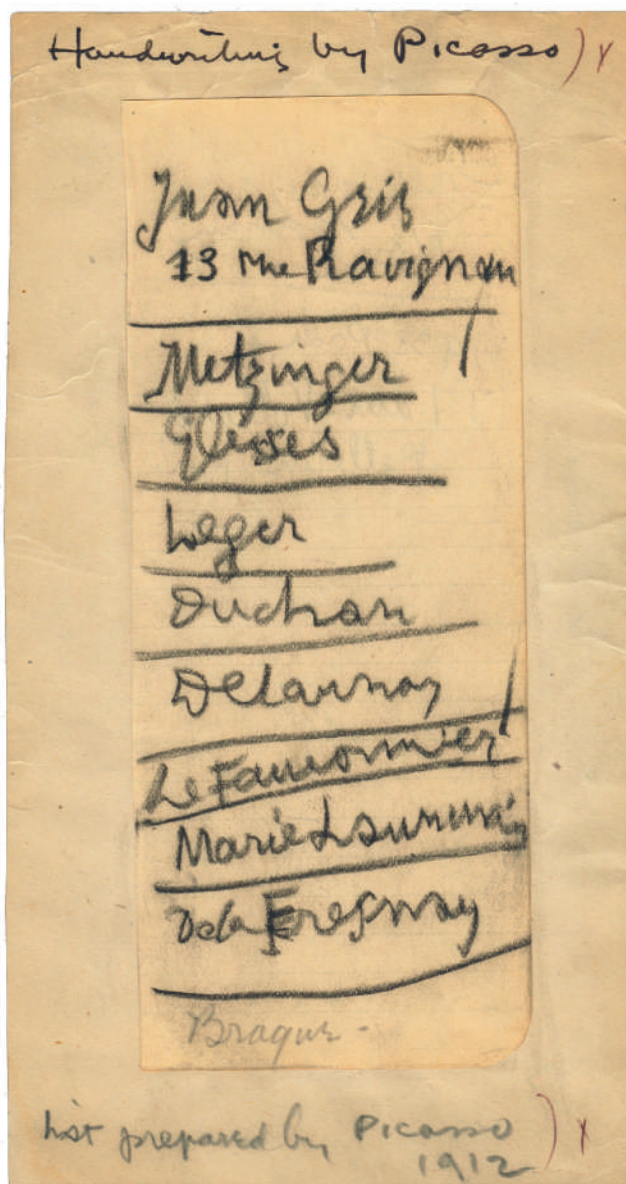 Handwriting by Picasso) x
Juan Gris
13 rue Ravignan
Metzinger
Gleises
Leger
Duchan
Delaunay
Le Fauconnier
Marie Laurencin
de la Fresnay
Braque -
List prepared by Picasso ) x
1912